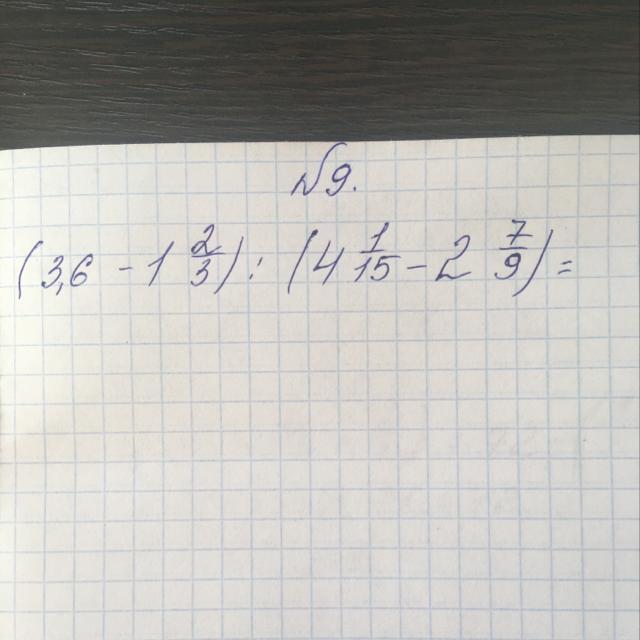 №9.
(3,6 - 1 2/3) : (4 1/15 - 2 7/9) =